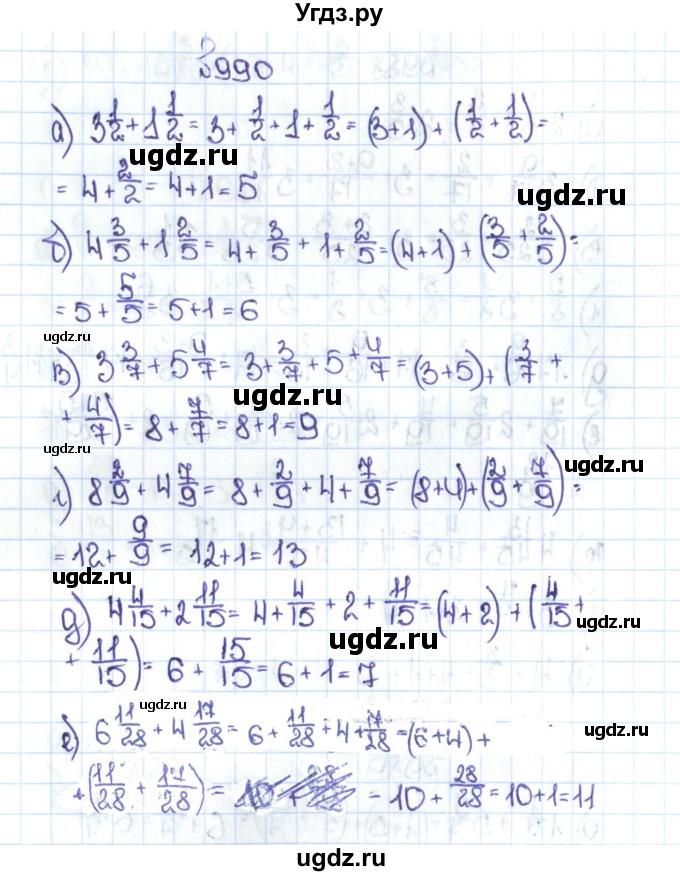 Угдз.ру
990
а) 3 1/2 + 1 1/2 = 3 + 1/2 + 1 + 1/2 = (3+1) + (1/2 + 1/2) =
ugdz.ru
ugdz.ru
= 4 + 2/2 = 4+1 = 5
б) 4 3/5 + 1 2/5 = 4 + 3/5 + 1 + 2/5 = (4+1) + (3/5 + 2/5) =
= 5 + 5/5 = 5+1 = 6
ugdz.ru
ugdz.ru
в) 3 3/7 + 5 4/7 = 3 + 3/7 + 5 + 4/7 = (3+5) + (3/7 +
ugdz.ru
+ 4/7) = 8 + 7/7 = 8+1 = 9
ugdz.ru
г) 8 2/9 + 4 7/9 = 8 + 2/9 + 4 + 7/9 = (8+4) + (2/9 + 7/9) =
ugdz.ru
= 12 + 9/9 = 12+1 = 13
ugdz.ru
д) 4 4/15 + 2 11/15 = 4 + 4/15 + 2 + 11/15 = (4+2) + (4/15 +
ugdz.ru
ugdz.ru
+ 11/15) = 6 + 15/15 = 6+1 = 7
ugdz.ru
е) 6 11/28 + 4 17/28 = 6 + 11/28 + 4 + 17/28 = (6+4) +
ugdz.ru
+ (11/28 + 17/28) = - 10 + 28/28 = 10+1 = 11
ugdz.ru
ugdz.ru
ugdz.ru